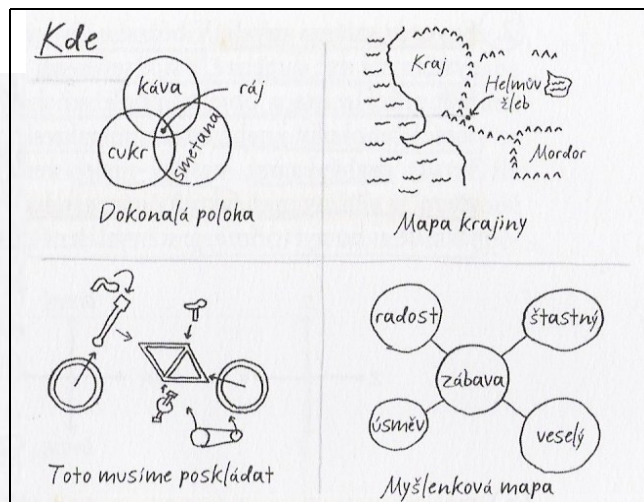 Kde
káva
ráj
cukr
smetana
Dokonalá poloha
Kraj
Helmův
žleb
Mordor
Mapa krajiny
Toto musíme poskládat
radost
štastný
zábava
úsměv
veselý
Myšlenková mapa